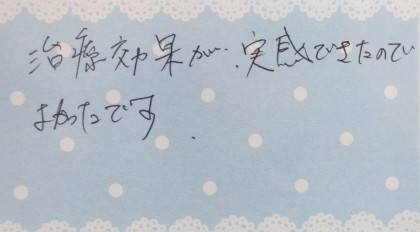 治療効果が、実感できたので
よかったです.